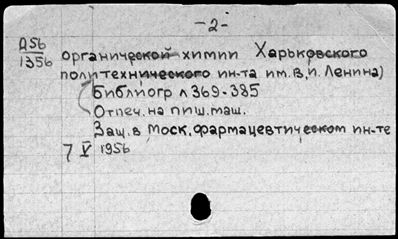 -2-
Д56
1356
органической химии Харьковского
политехнического ин-та им. В.И. Ленина)
Библиогр л 369-385
Отпеч. на пиш. маш.
Защ. в Моск. фармацевтическом ин-те
7 V 1956